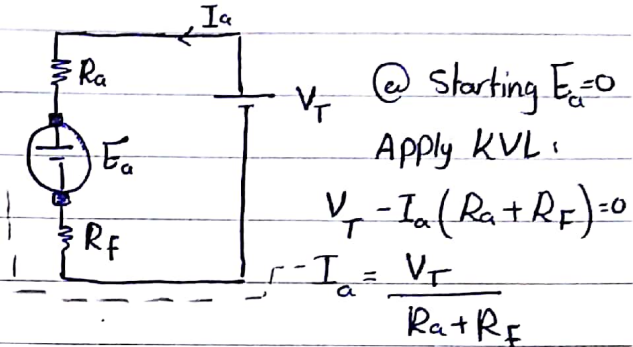 Ia
Ra
VT
@ Starting Ea=0
Apply KVL:
Ea
VT - Ia(Ra + RF)=0
RF
Ia = VT
Ra+RF